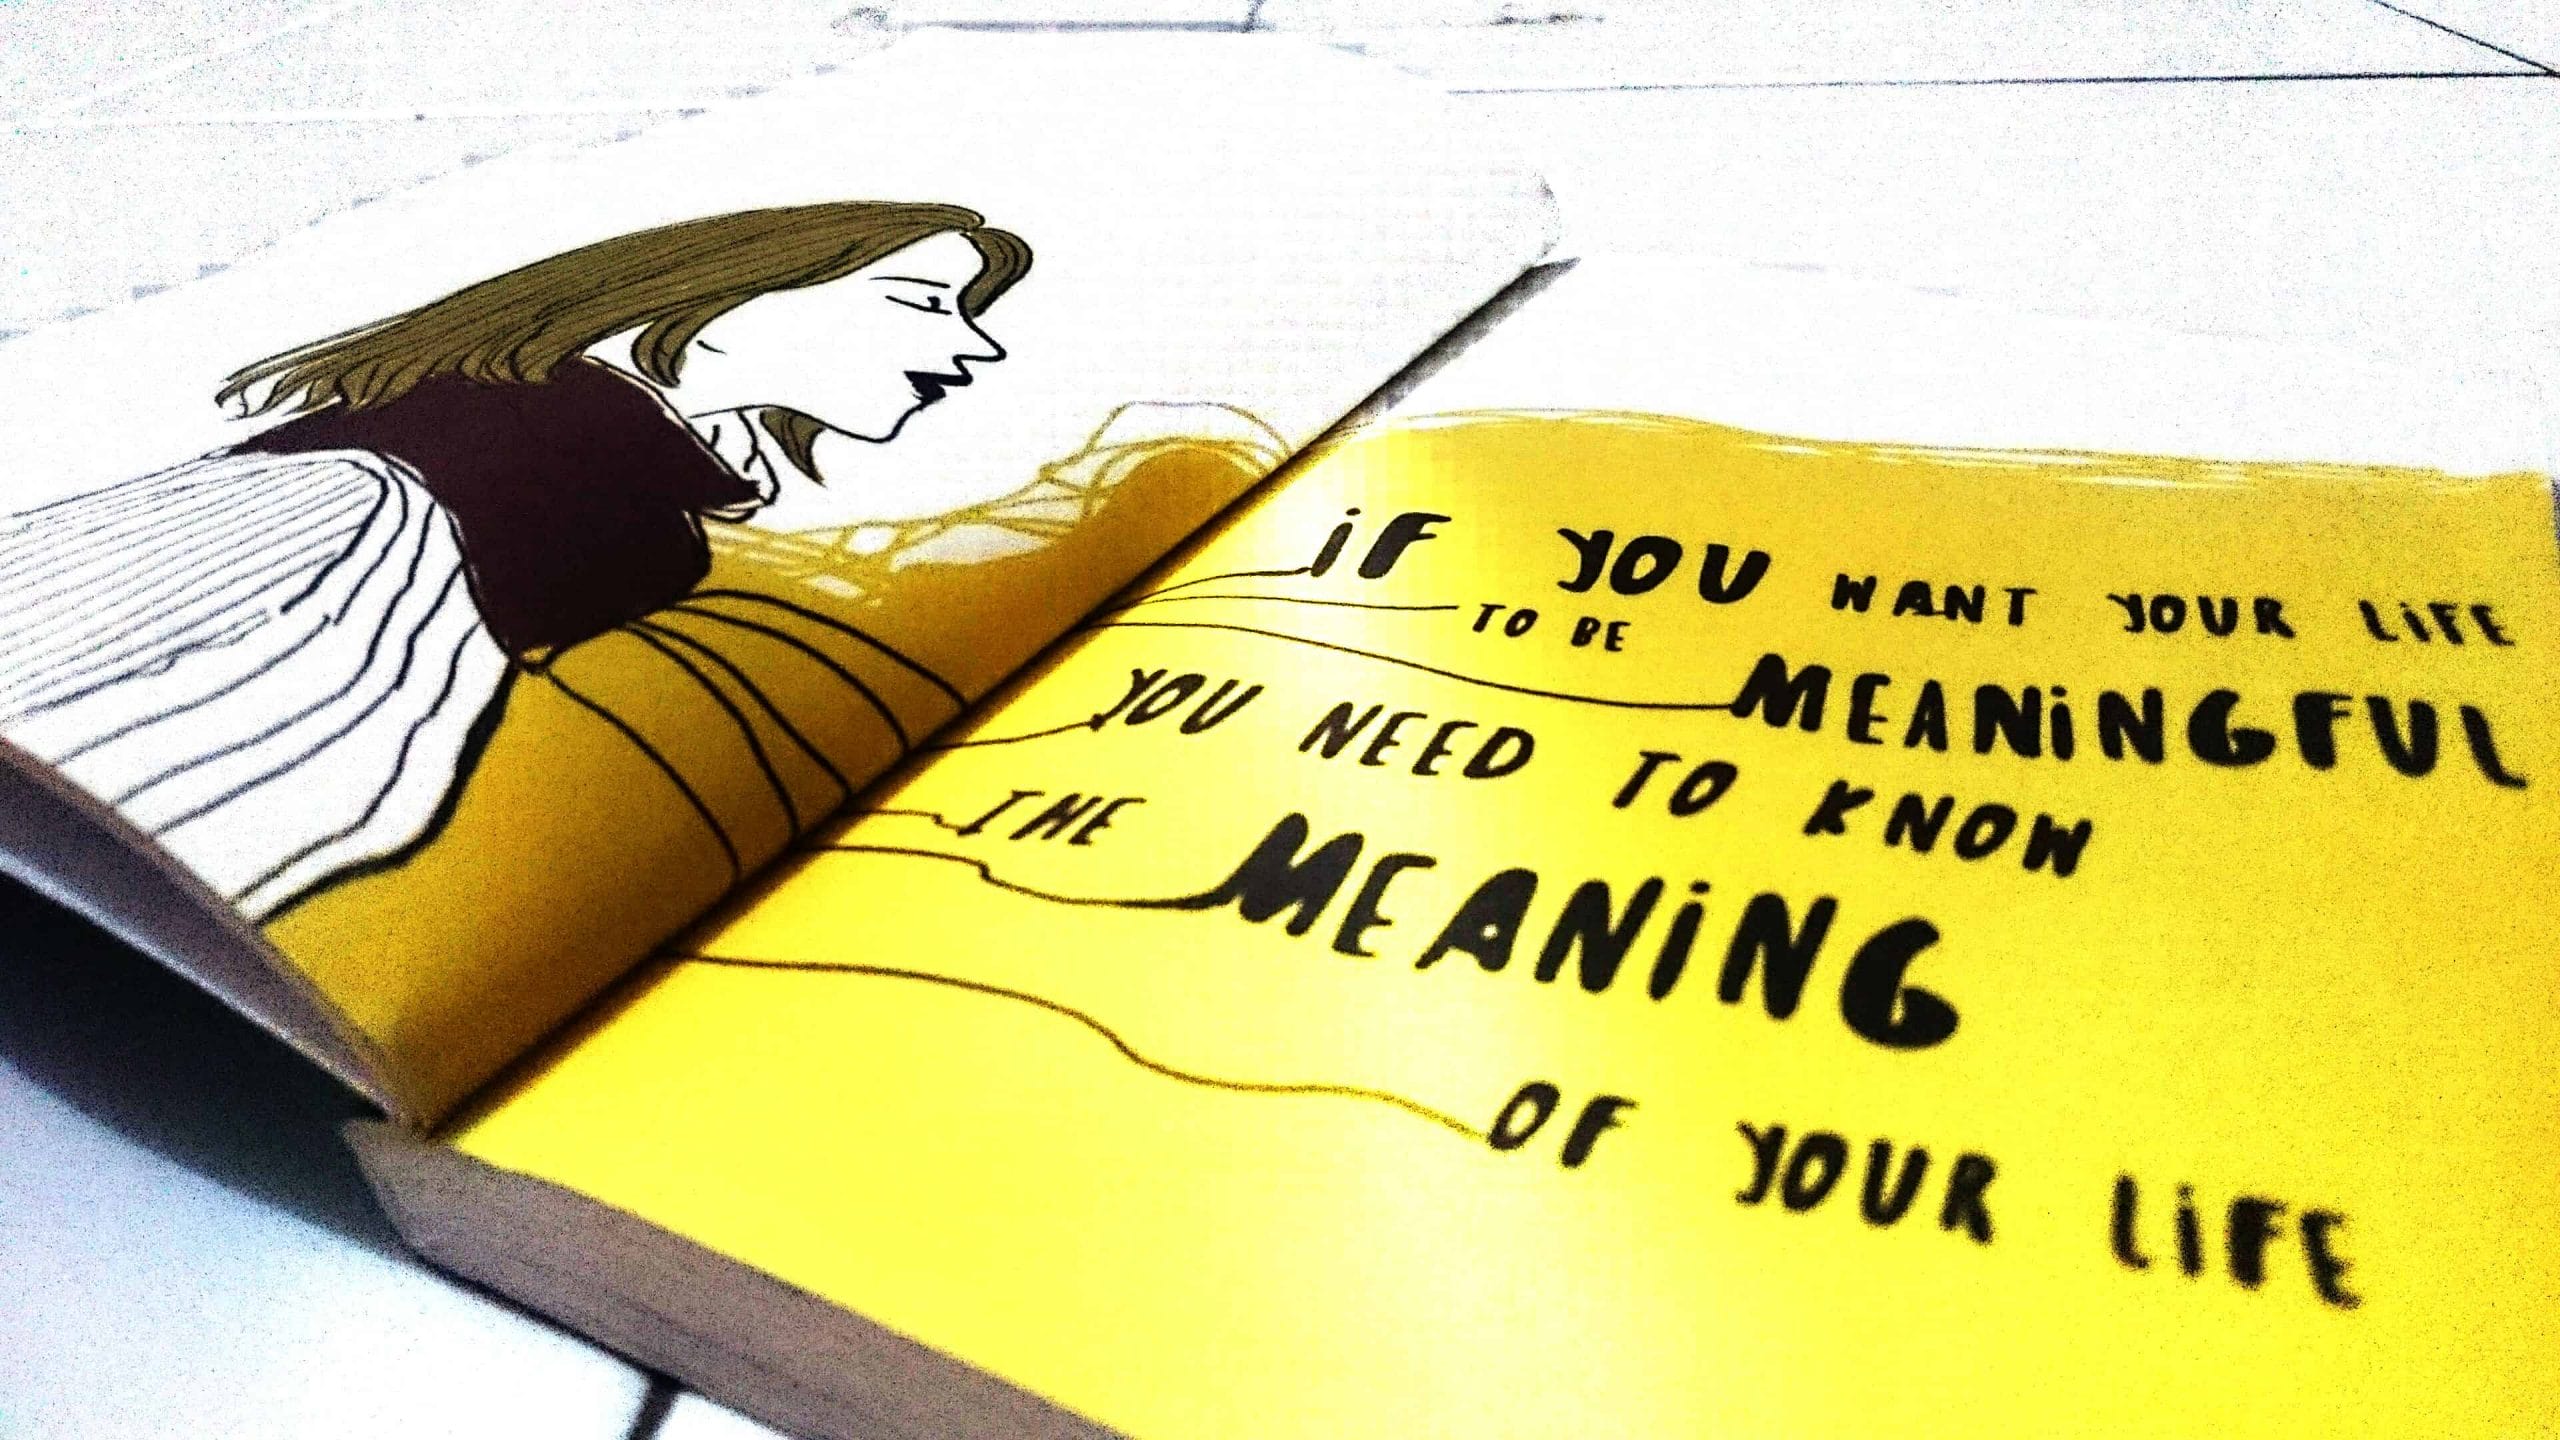 iF YOU WANT YOUR LiFE
TO BE MEANiNGFUL
YOU NEED TO KNOW
THE MEANiNG
OF YOUR LiFE